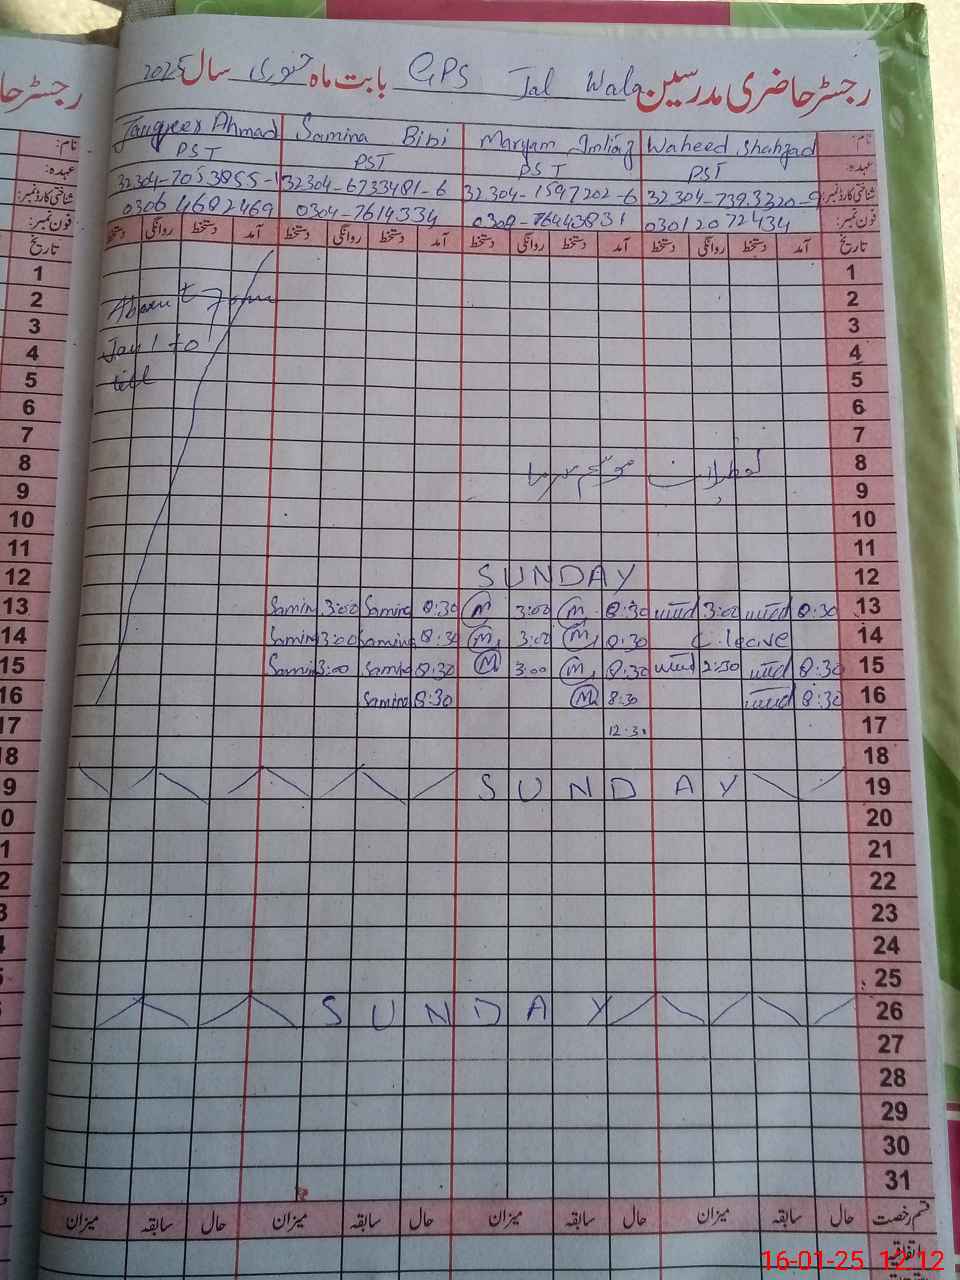 رجسٹر حاضری مدرسین GPS Jal Wala بابت ماہ جنوری سال 2025
نام: Waheed Shahzad Maryam Imtiaz Samina Bibi Jangreer Ahmad
عہدہ: PST PST PST PST
شناختی کارڈ نمبر: 32304-7393320-9 32304-1597202-6 32304-6733481-6 32304-7053855-1
فون نمبر: 03012072434 0309-76443831 0304-7614334 0306 4682469
تاریخ آمد دستخط روانگی دستخط آمد دستخط روانگی دستخط آمد دستخط روانگی دستخط آمد دستخط روانگی دستخط
1
2 Absent from
3
4 Jan 1 to
5 till
6
7
8 تعطیلات موسم سرما
9
10
11
12 SUNDAY
13 8:30 3:00 8:30 M 3:00 M 8:30 Samina 3:00 Samina
14 C. leave 8:30 M 3:00 M 8:30 Samina 3:00 Samina
15 8:30 2:30 8:30 M 3:00 M 8:30 Samina 3:00 Samina
16 8:30 8:30 M 8:30 Samina
17 12:30
18
19 SUNDAY
20
21
22
23
24
25
26 SUNDAY
27
28
29
30
31
قسم رخصت حال سابقہ میزان حال سابقہ میزان حال سابقہ میزان حال سابقہ میزان
اتفاقیہ
16-01-25 12:12